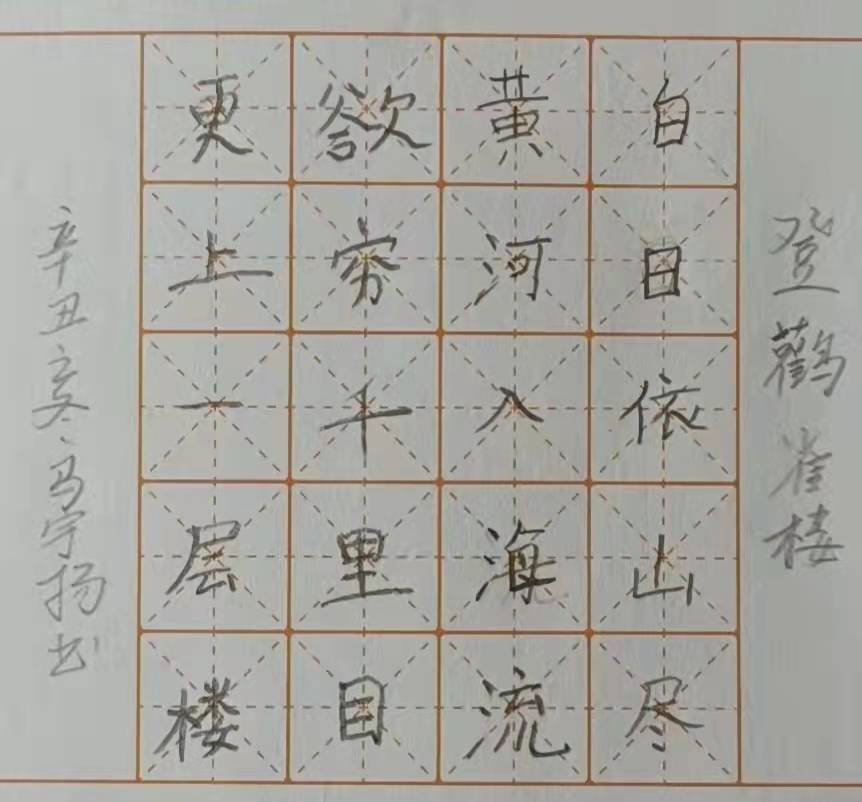 登鸛雀楼
白日依山尽
黄河入海流
欲穷千里目
更上一层楼
辛丑亥冬马宇扬书